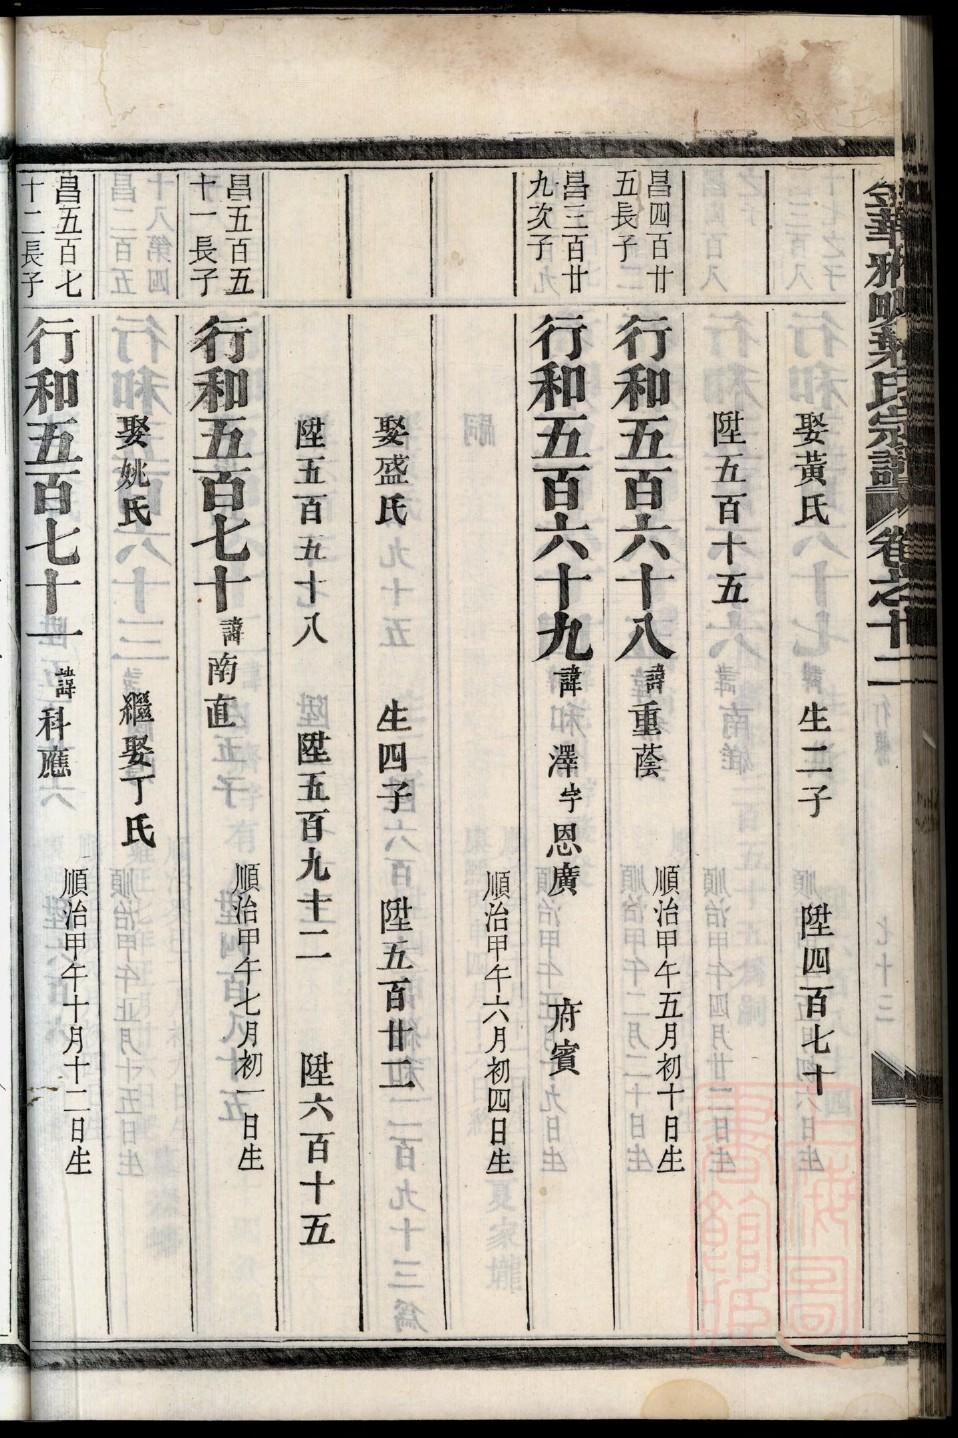 金華雅畈葉氏宗譜 卷之十二
娶黃氏 生二子 陞四百七十
陞五百十五
昌四百廿五長子
行和五百六十八 諱重蔭 順治甲午五月初十日生
昌三百廿九次子
行和五百六十九 諱澤字恩廣 府賓 順治甲午六月初四日生
娶盛氏 生四子 陞五百廿二
陞五百五十八 陞五百九十二 陞六百十五
昌五百五十一長子
行和五百七十 諱南直 順治甲午七月初一日生
娶姚氏 繼娶丁氏
昌五百七十二長子
行和五百七十一 諱科應 順治甲午十月十二日生